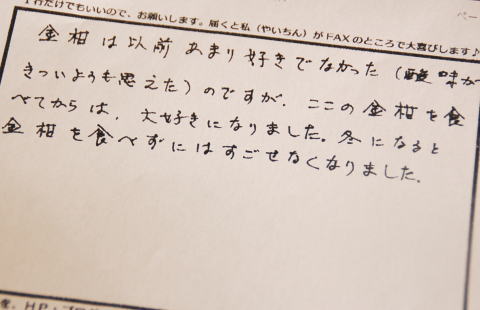 ペー
1行だけでもいいので、お願いします。届くと私（やいちん）がFAXのところで大喜びします♪
金柑は以前あまり好きでなかった（酸味が
きついようも思えた）のですが、ここの金柑を食
べてからは、大好きになりました。冬になると
金柑を食べずにはすごせなくなりました。
HP・ブロ